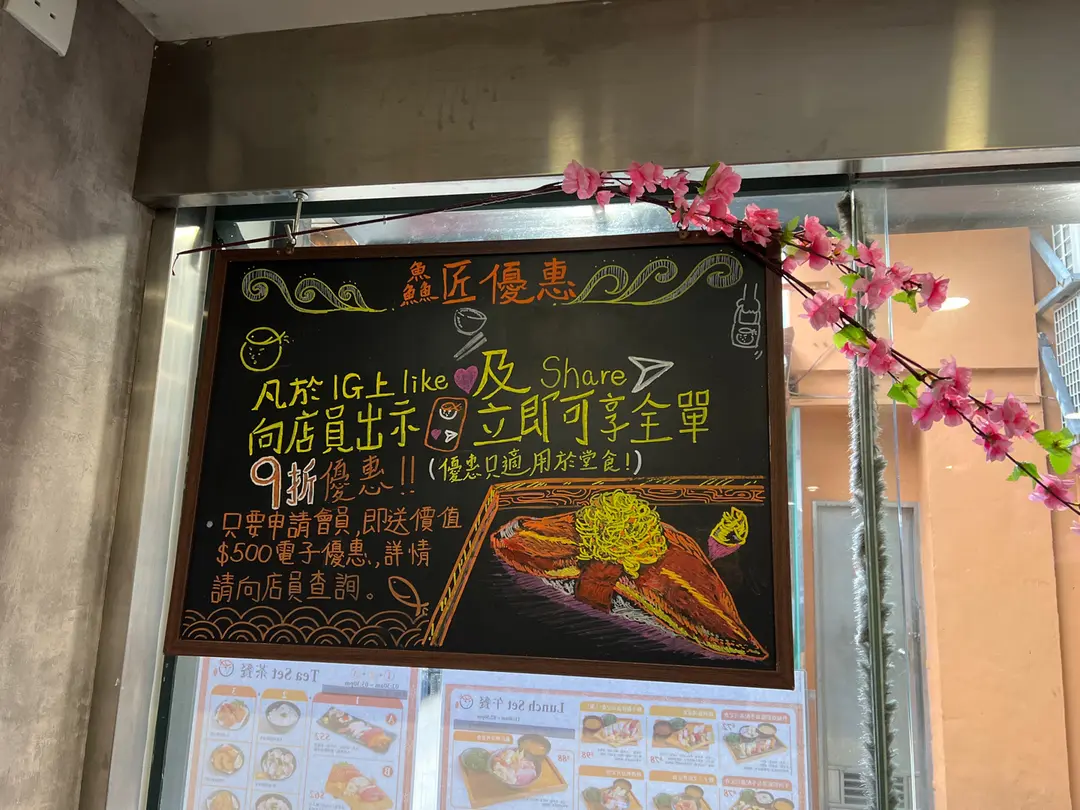 鱻匠優惠
凡於IG上like及Share
向店員出示立即可享全單
9折優惠!!(優惠只適用於堂食!)
只要申請會員,即送價值
$500電子優惠,詳情
請向店員查詢。
Tea Set 茶餐
Lunch Set 午餐